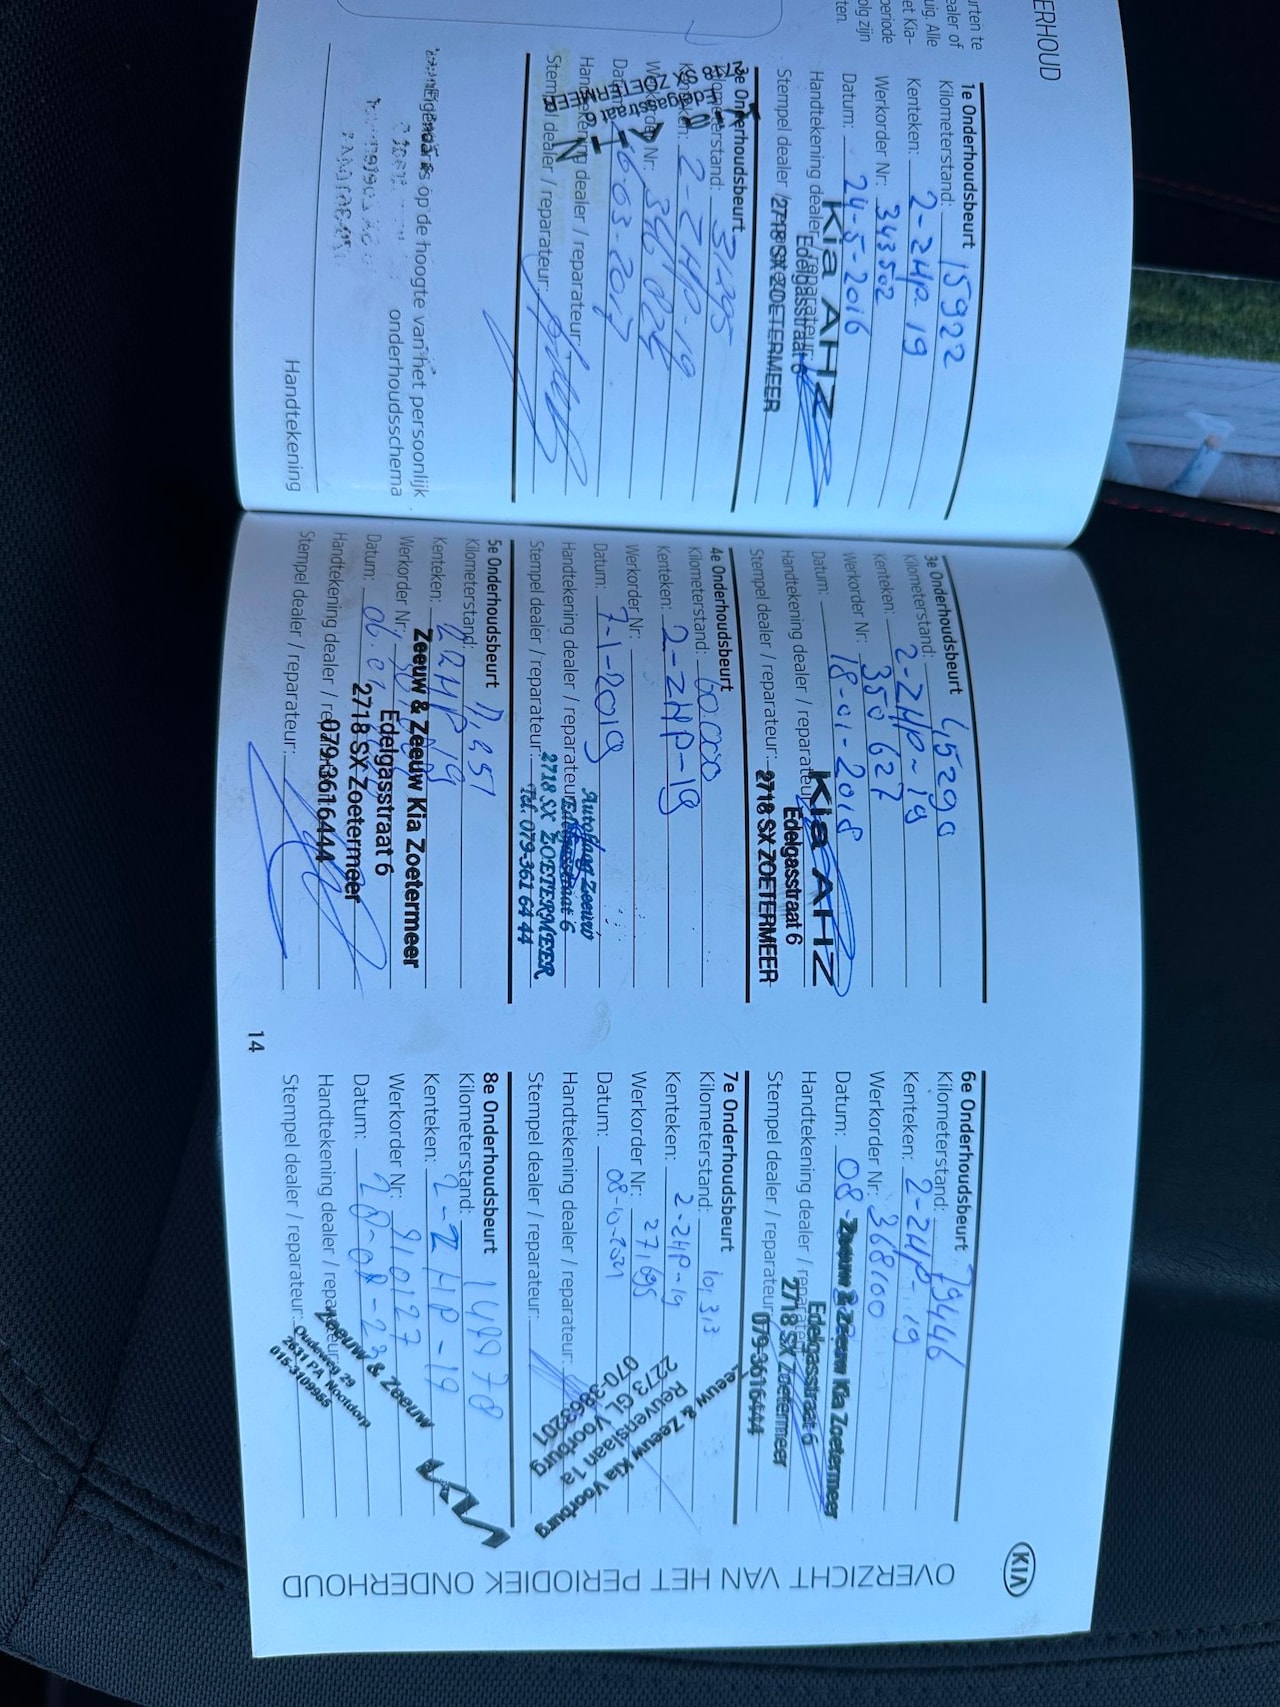 ERHOUD
rten te
ealer of
uig. Alle
periode
et Kia-
olg zijn
ten.
1e Onderhoudsbeurt
Kilometerstand: 15922
Kenteken: 2-ZHP-19
Werkorder Nr: 343502
Datum: 24-5-2016
Handtekening dealer / reparateur:
Stempel dealer /
Kia AHZ
Edelgasstraat 6
2718 SX ZOETERMEER
2e Onderhoudsbeurt
Kilometerstand: 31295
Kenteken: 2-ZHP-19
Werkorder Nr: 346024
Datum: 16-03-2017
Handtekening dealer / reparateur:
Stempel dealer / reparateur:
Edelgasstraat 6
2718 SX ZOETERMEER
Eigenaar is op de hoogte van het persoonlijk
onderhoudsschema
Handtekening
3e Onderhoudsbeurt
Kilometerstand: 45290
Kenteken: 2-ZHP-19
Werkorder Nr: 350627
Datum: 18-01-2018
Handtekening dealer / reparateur:
Stempel dealer / reparateur:
Kia AHZ
Edelgasstraat 6
2718 SX ZOETERMEER
4e Onderhoudsbeurt
Kilometerstand: 60.000
Kenteken: 2-ZHP-19
Werkorder Nr:
Datum: 7-1-2019
Handtekening dealer / reparateur:
Stempel dealer / reparateur:
Autohaag Zeeuw
Edelgasstraat 6
2718 SX ZOETERMEER
Tel. 079-361 64 44
5e Onderhoudsbeurt
Kilometerstand:
Kenteken: 2ZHP19
Werkorder Nr:
Datum: 06.
Handtekening dealer /
Stempel dealer / reparateur:
Zeeuw & Zeeuw Kia Zoetermeer
Edelgasstraat 6
2718 SX Zoetermeer
079-3616444
14
6e Onderhoudsbeurt
Kilometerstand: 79446
Kenteken: 2-ZHP-19
Werkorder Nr: 368100
Datum: 08-
Handtekening dealer / reparateur:
Stempel dealer / reparateur:
Zeeuw & Zeeuw Kia Zoetermeer
Edelgasstraat 6
2718 SX Zoetermeer
079-3616444
7e Onderhoudsbeurt
Kilometerstand: 101313
Kenteken: 2-ZHP-19
Werkorder Nr: 271695
Datum: 08-10-2021
Handtekening dealer / reparateur:
Stempel dealer / reparateur:
Zeeuw & Zeeuw Kia Voorburg
Reuvenslaan 1a
2273 GL Voorburg
070-3863201
8e Onderhoudsbeurt
Kilometerstand: 149978
Kenteken: 2-ZHP-19
Werkorder Nr: 910127
Datum: 28-08-23
Handtekening dealer / reparateur:
Stempel dealer / reparateur:
Zeeuw & Zeeuw
Oudeweg 29
2631 PA Nootdorp
015-3109955
KIA
OVERZICHT VAN HET PERIODIEK ONDERHOUD
KIA